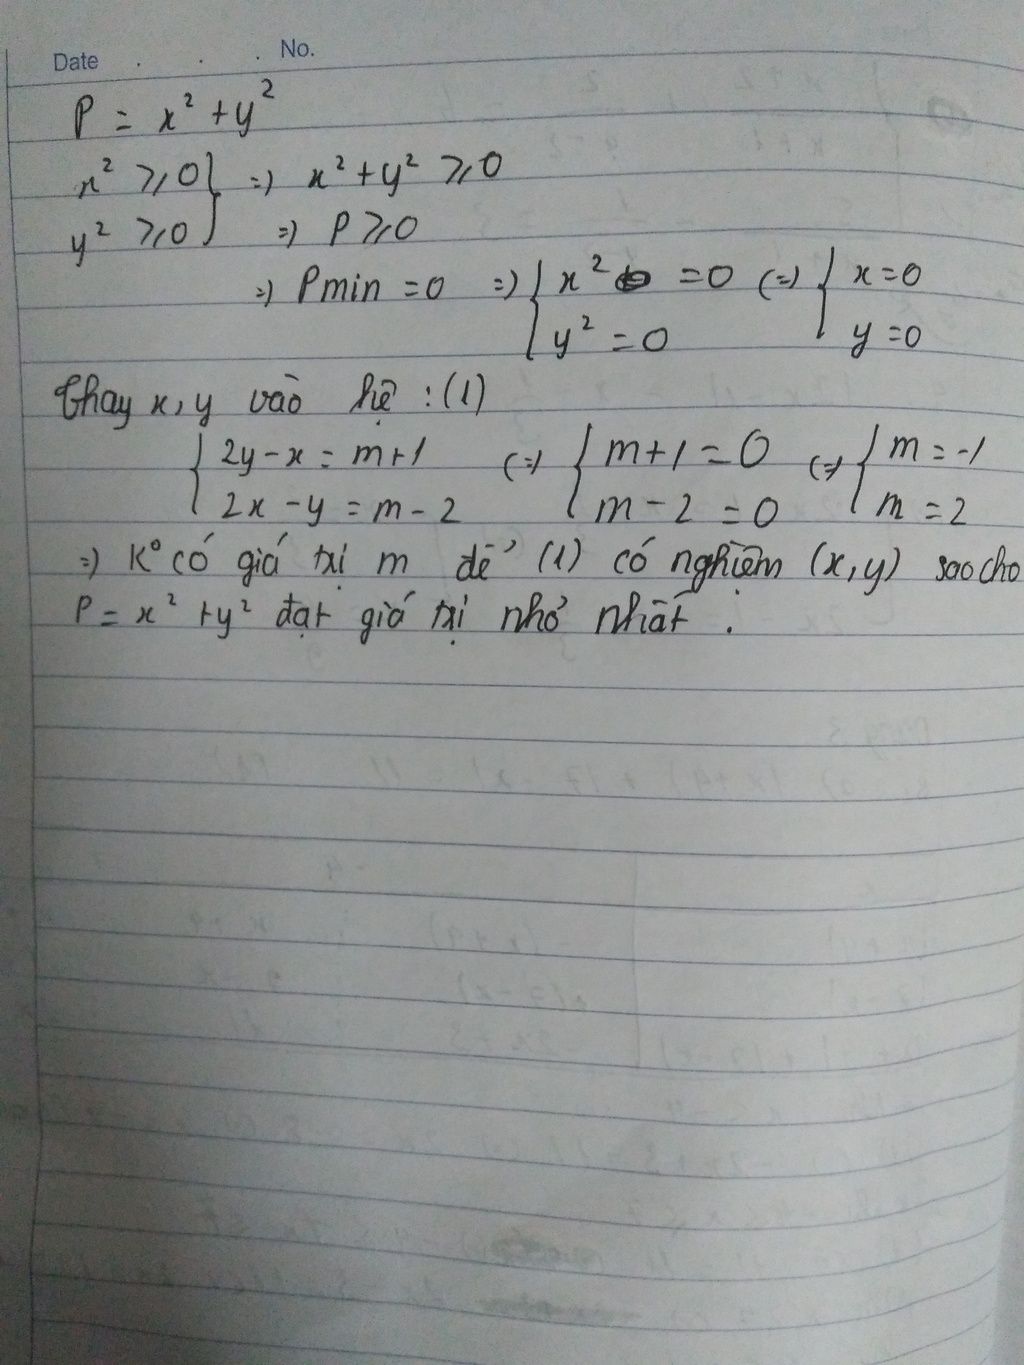 Date . . . No.
P = x² + y²
x² ⩾ 0 } => x² + y² ⩾ 0
y² ⩾ 0 } => P ⩾ 0
=> Pmin = 0 => { x² = 0 (=> { x = 0
y² = 0 y = 0
Thay x, y vào hệ : (1)
{ 2y - x = m+1 (=> { m+1 = 0 (=> { m = -1
2x - y = m - 2 m - 2 = 0 m = 2
=> K° có giá trị m để (1) có nghiệm (x, y) sao cho
P = x² + y² đạt giá trị nhỏ nhất .